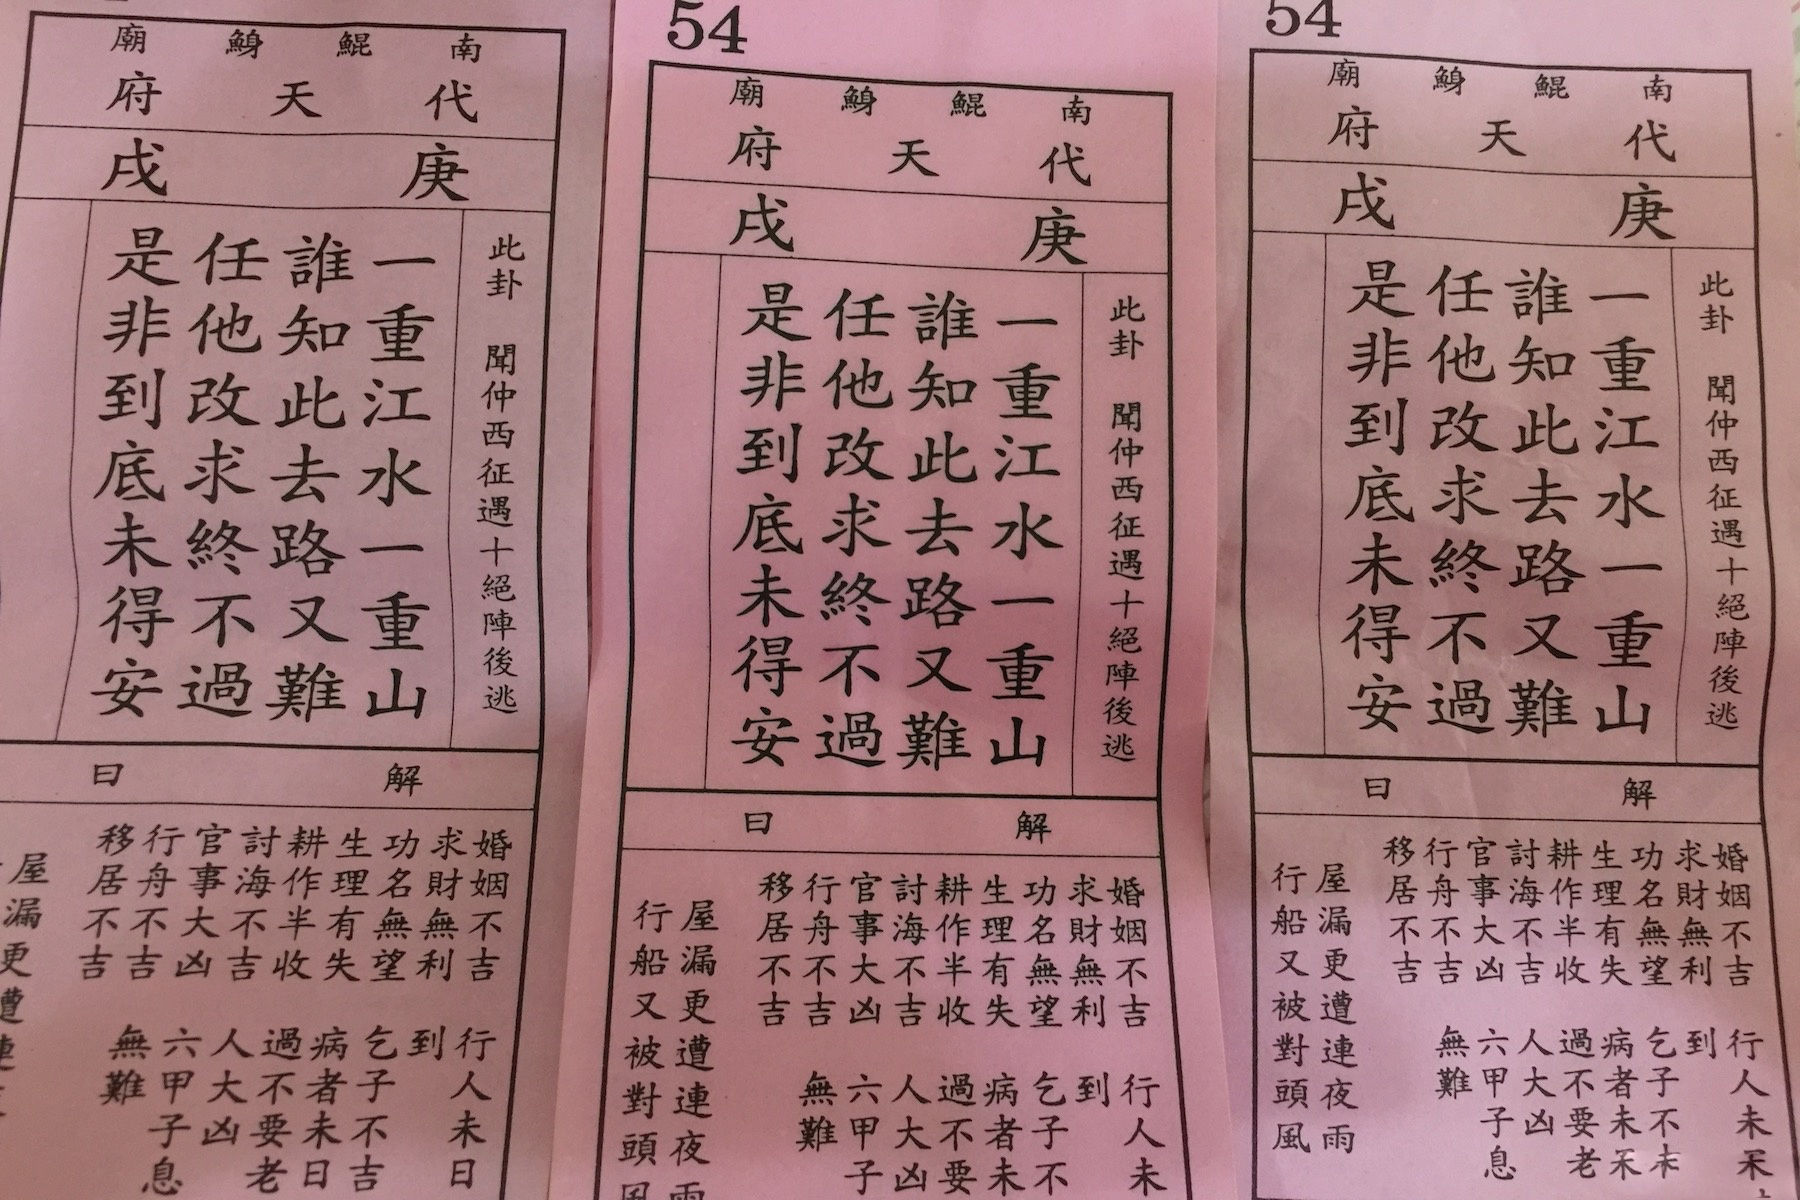 南鯤鯓廟
代天府
庚戌
此卦 聞仲西征遇十絕陣後逃
一重江水一重山
誰知此去路又難
任他改求終不過
是非到底未得安
解曰
婚姻不吉
求財無利
功名無望
生理有失
耕作半收
討海不吉
官事大凶
行舟不吉
移居不吉
行人未日
到
乞子不吉
病者未日
過不要老
人大凶
六甲子息
無難
屋漏更遭連
54
南鯤鯓廟
代天府
庚戌
此卦 聞仲西征遇十絕陣後逃
一重江水一重山
誰知此去路又難
任他改求終不過
是非到底未得安
解曰
婚姻不吉
求財無利
功名無望
生理有失
耕作半收
討海不吉
官事大凶
行舟不吉
移居不吉
行人未
到
乞子不
病者未
過不要
人大凶
六甲子
無難
屋漏更遭連夜雨
行船又被對頭風
54
南鯤鯓廟
代天府
庚戌
此卦 聞仲西征遇十絕陣後逃
一重江水一重山
誰知此去路又難
任他改求終不過
是非到底未得安
解曰
婚姻不吉
求財無利
功名無望
生理有失
耕作半收
討海不吉
官事大凶
行舟不吉
移居不吉
行人未
到
乞子不
病者未
過不要老
人大凶
六甲子息
無難
屋漏更遭連夜雨
行船又被對頭風